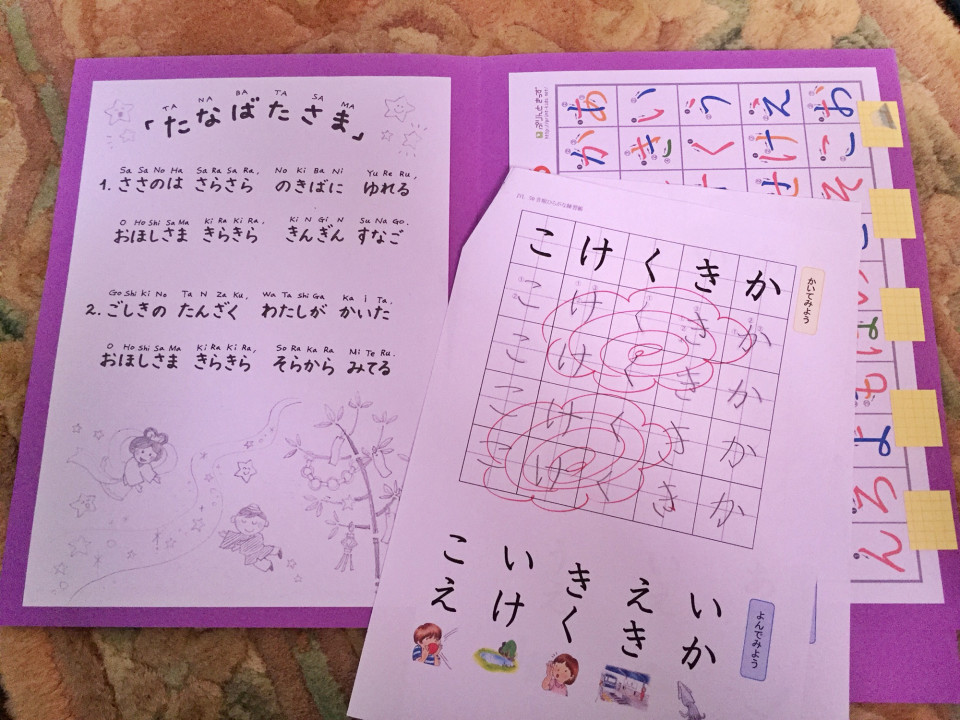 TA NA BA TA SA MA
「たなばたさま」
Sa Sa No Ha Sa Ra Sa Ra, No Ki Ba Ni Yu Re Ru,
1. ささのは さらさら のきばに ゆれる
O Ho Shi Sa Ma Ki Ra Ki Ra, Ki N Gi N Su Na Go.
おほしさま きらきら きんぎん すなご
Go Shi Ki No Ta N Za Ku, Wa Ta Shi Ga Ka I Ta.
2. ごしきの たんざく わたしが かいた
O Ho Shi Sa Ma Ki Ra Ki Ra, So Ra Ka Ra Mi Te Ru.
おほしさま きらきら そらから みてる
かいてみよう
か き く け こ
か き く け こ
か き く け こ
か き く け こ
か き け こ
よんでみよう
いか
えき
きく
いけ
こえ
あ い う え お
か き く け こ